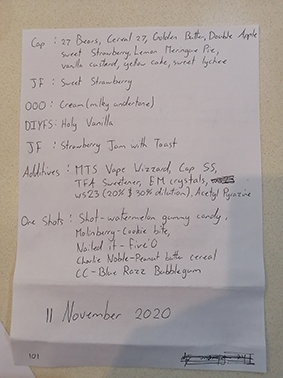 Cap : 27 Bears, Cereal 27, Golden Butter, Double Apple
sweet Strawberry, Lemon Meringue Pie,
vanilla custard, yellow cake, sweet lychee
JF : Sweet Strawberry
OOO : Cream (milky undertone)
DIYFS : Holy Vanilla
JF : Strawberry Jam with Toast
Additives : MTS Vape Wizzard, Cap SS,
TFA Sweetener, EM crystals,
WS23 (20% & 30% dilution), Acetyl Pyrazine
One Shots : Shot - watermelon gummy candy,
Molinberry - Cookie bite,
Nailed it - Five'O
Charlie Noble - Peanut butter cereal
CC - Blue Razz Bubblegum
11 November 2020
101